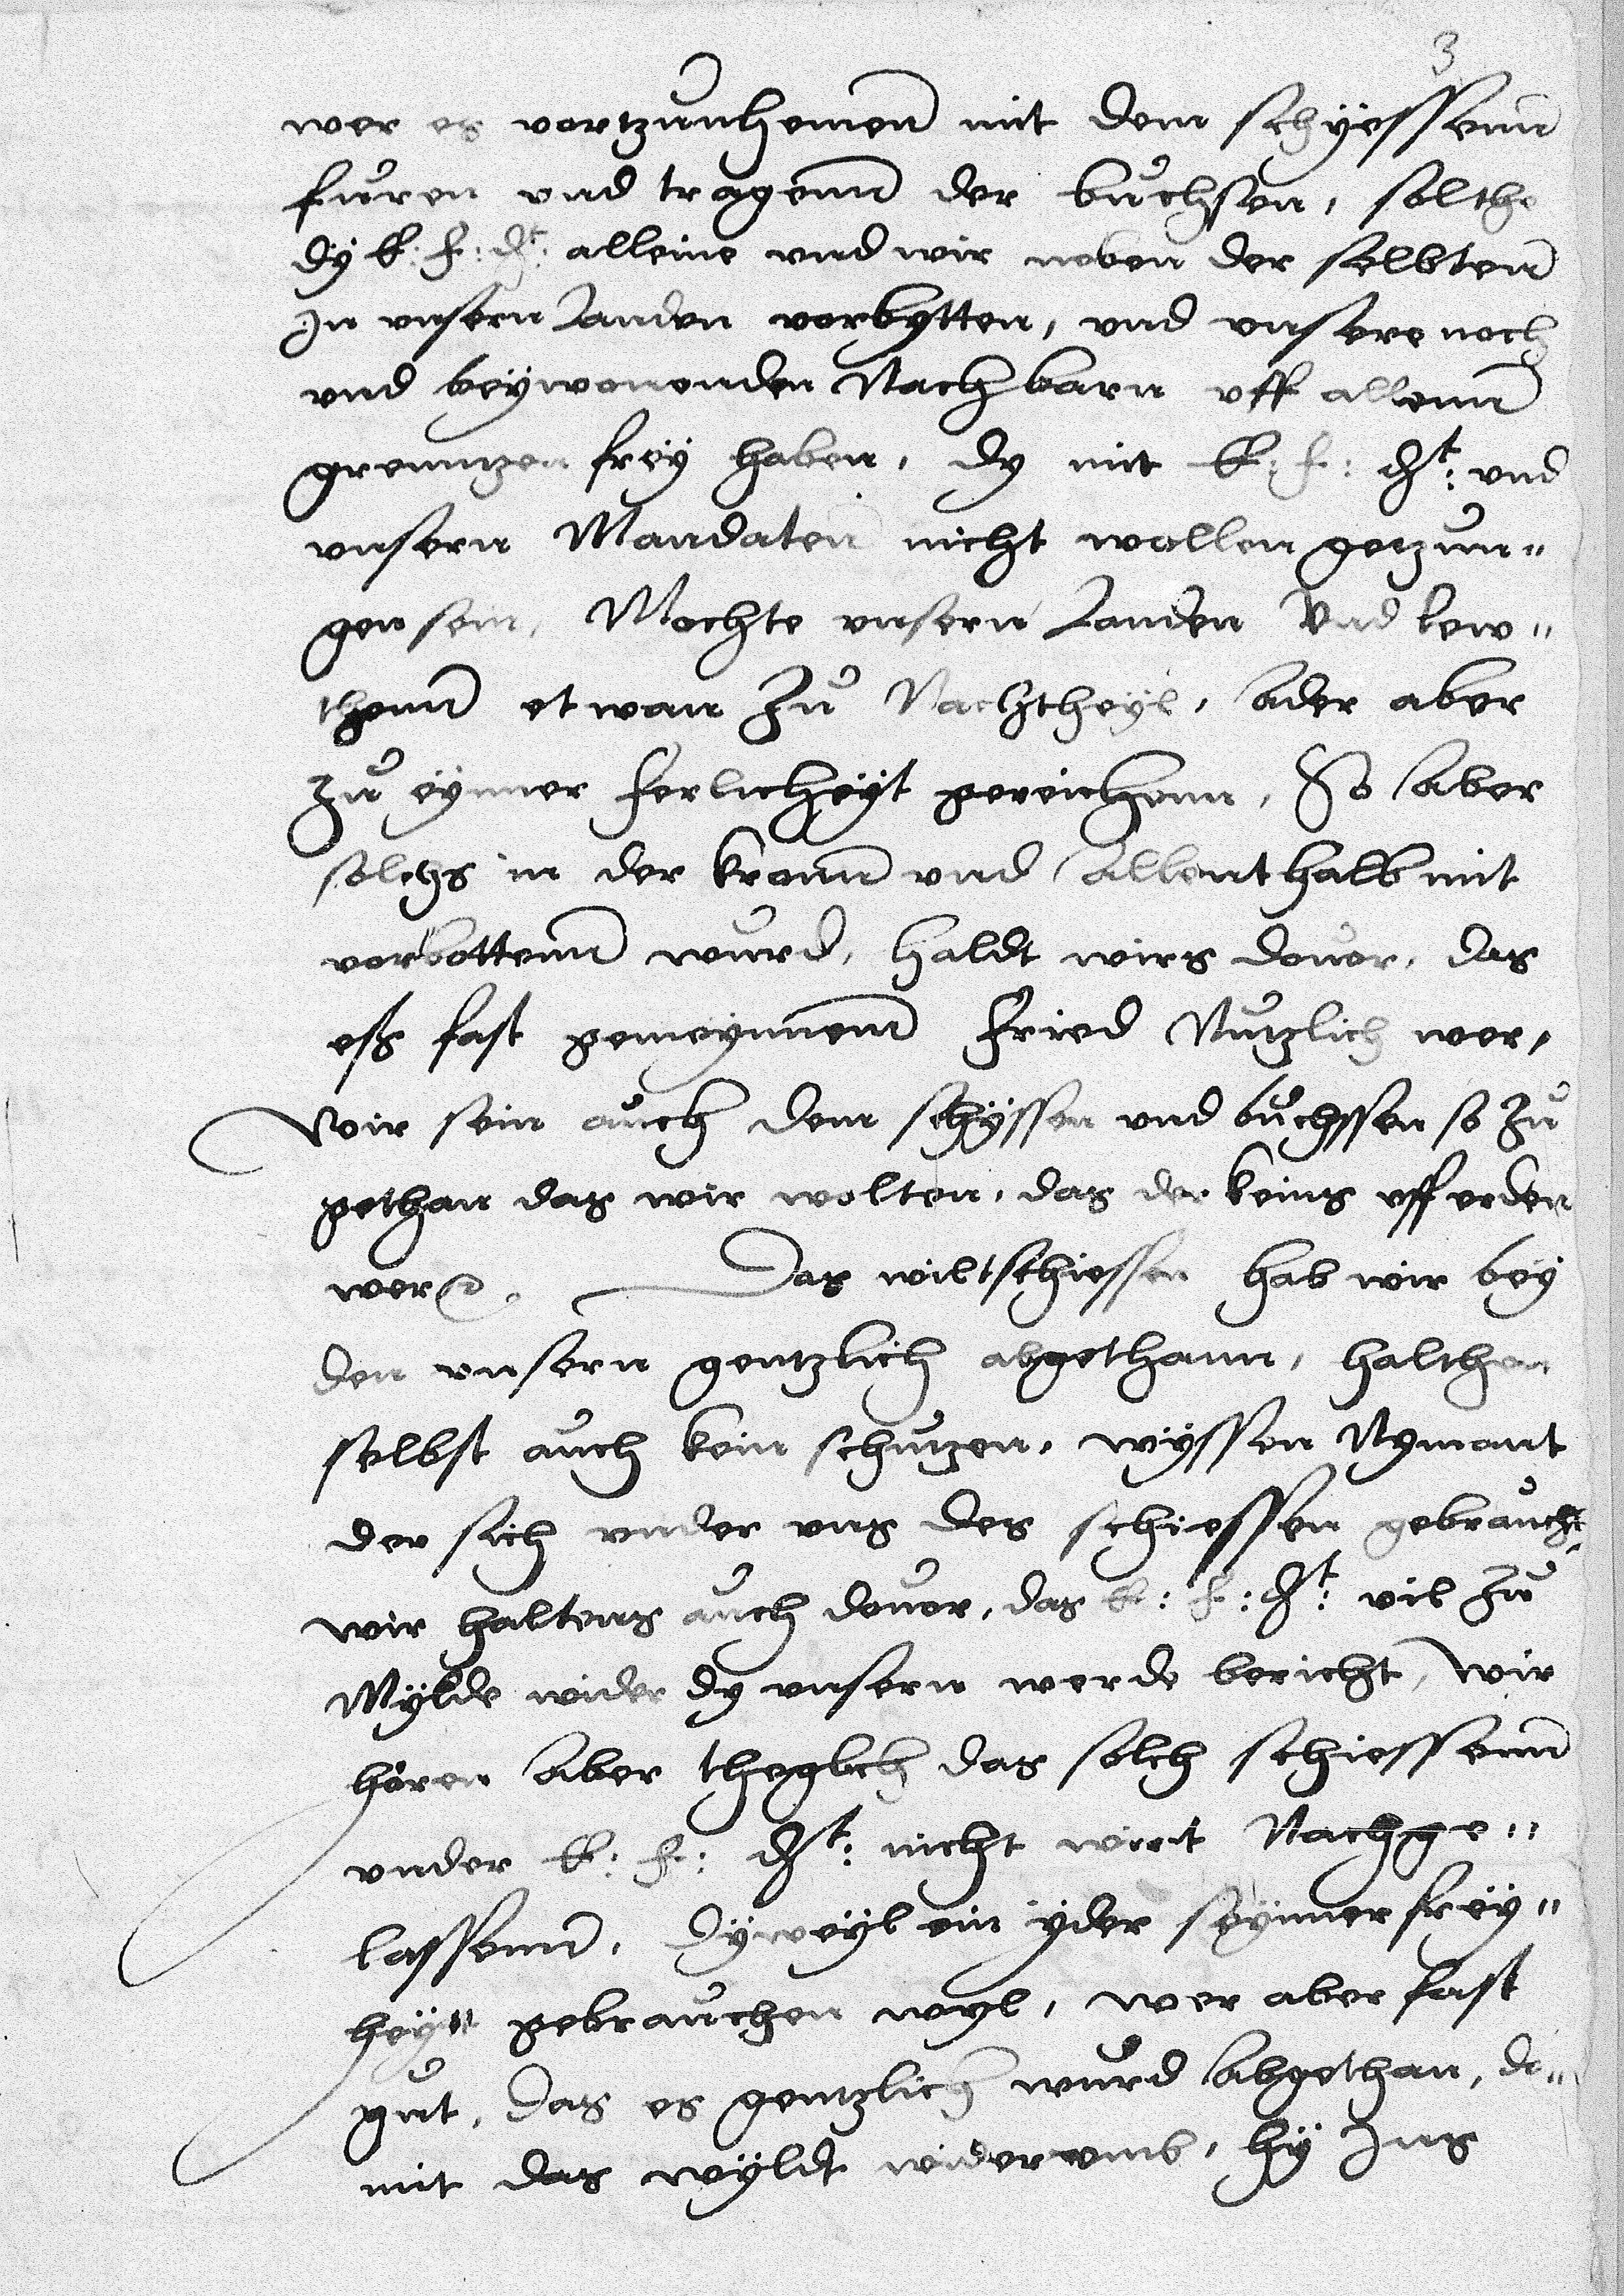 3
wer es vortzunhemen mit dem schyessenn
furen vnd tragenn der buchsen, solthe
dy k: f: g^t: alleine vnd wir neben der selbten
In vnsern Landen vorbytten, vnd vnsere noch
vnd beywonenden Nachbarn vff allenn
grenntzen frey haben, dy mit k: f: g^t: vnd
vnsern Mandaten nicht wollen getzun„
gen sein, Mochte vnsern Landen Vnd lew„
thenn etwan zu Nachtheyl, Ader aber
zu eynner ferlicheyt gereichenn, So Aber
solchs in der kronn vnd Allenthalb mit
vorbottenn wurd, haldt wirs douor, das
eß fast gemeynnenn Fried Nutzlich wer,
Wir sein auch dem schyssen vnd buchssen so zu
gethan das wir wolten, das der keins vff erden
wer. Das wiltschiessen hab wir bey
den vnsern gentzlich abgethann, halthen
selbst auch kein schutzen, wyssen Nymant
der sich vnder vns des schiessen gebraucht,
wir haltens auch douor, das k: f: g^t: vil zu
Mylde wider dy vnsern werde bericht, wir
hören Aber theglich das solch schiessenn
vnder k: f: g^t: nicht wirt Nachge„
lassenn, Dyweyl ein yder seynner frey„
heyt gebrauchen wyl, wer aber fast
gut, das es gentzlich wurd Abgethan, do„
mit das wyldt widervmb, hy Ins